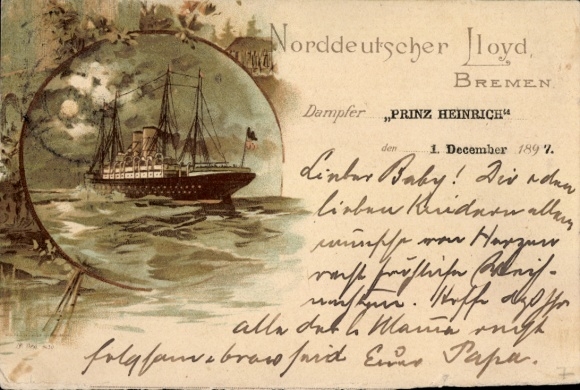 Norddeutscher Lloyd,
BREMEN
Dampfer „PRINZ HEINRICH"
den 1. December 1897.
Lieber Baby! Dir & den
lieben Kindern allen
wünsche von Herzen
recht fröhliche Weih-
nachten. Hoffe daß Ihr
alle der l. Mama recht
folgsam & brav seid Euer Papa.